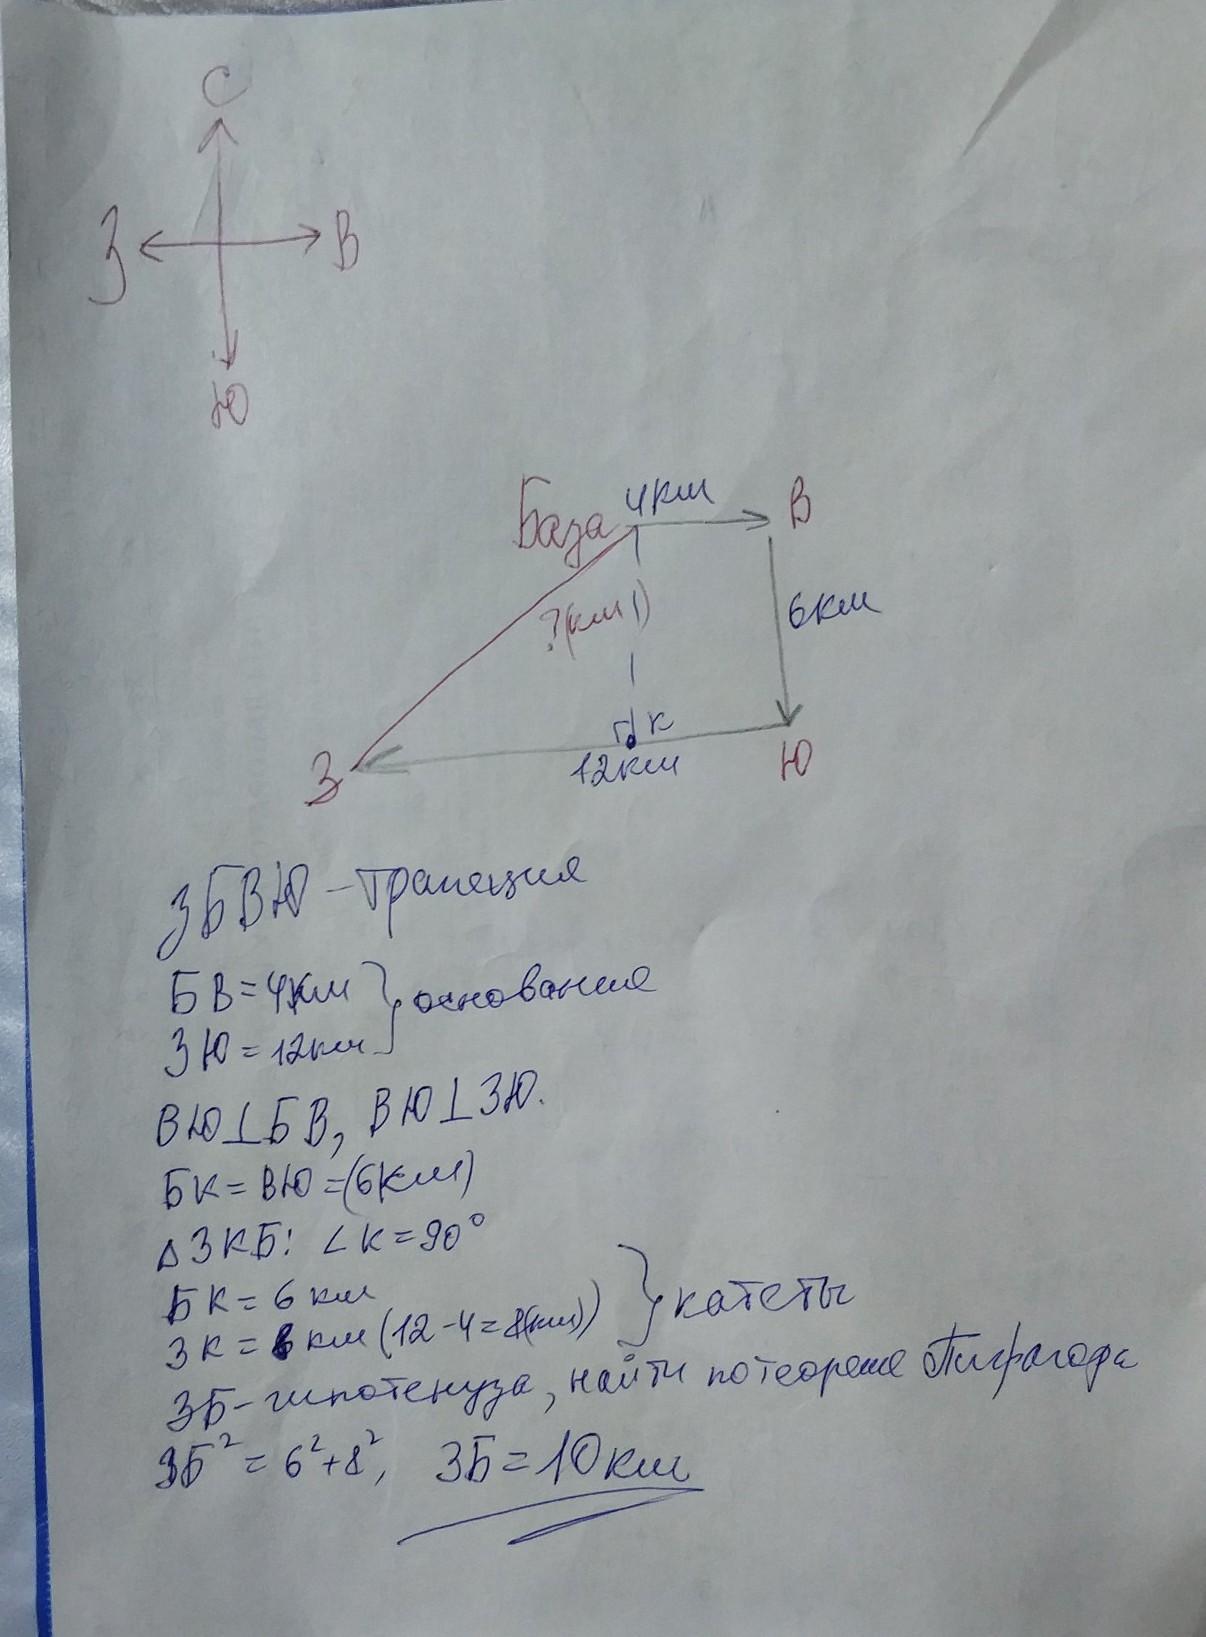 С
З
В
Ю
База
4км
В
6км
?(км)
К
З
12км
Ю
ЗБВЮ - трапеция
БВ = 4км } основание
ЗЮ = 12км
ВЮ⊥БВ, ВЮ⊥ЗЮ.
БК = ВЮ = (6км)
△ЗКБ: ∠К = 90°
БК = 6 км } катеты
ЗК = 8 км (12 - 4 = 8(км))
ЗБ - гипотенуза, найти по теореме Пифагора
ЗБ² = 6² + 8², ЗБ = 10 км